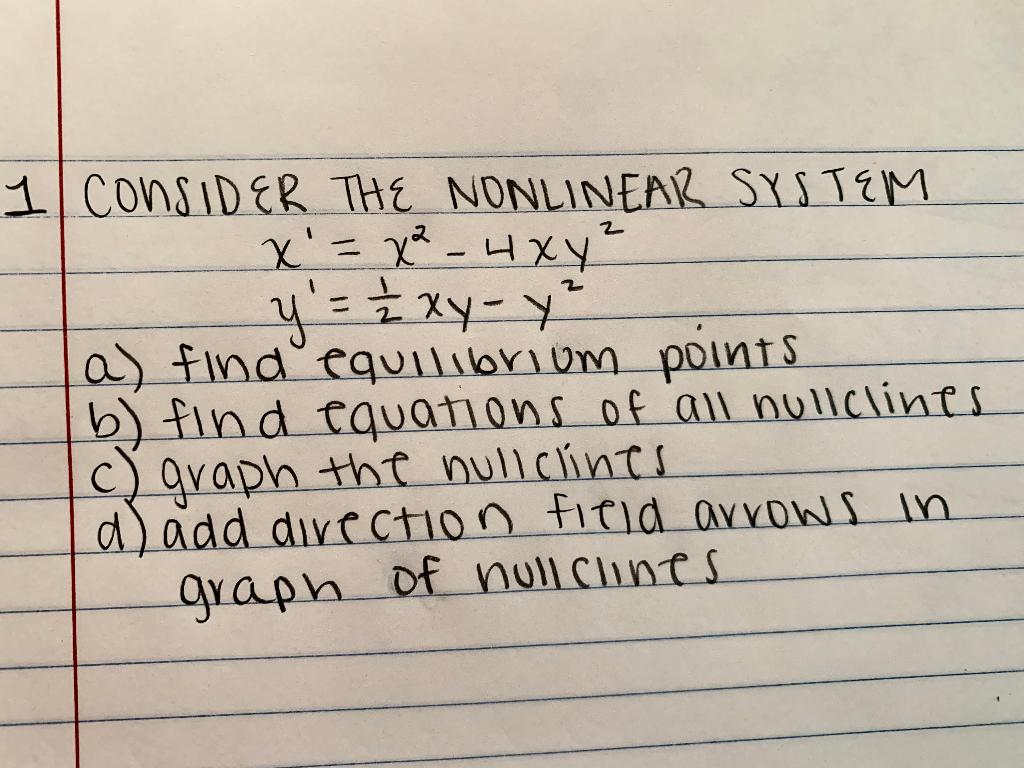 1 CONSIDER THE NONLINEAR SYSTEM
x' = x² - 4xy²
y' = ½ xy - y²
a) find equilibrium points
b) find equations of all nullclines
c) graph the nullclines
d) add direction field arrows in
graph of nullclines